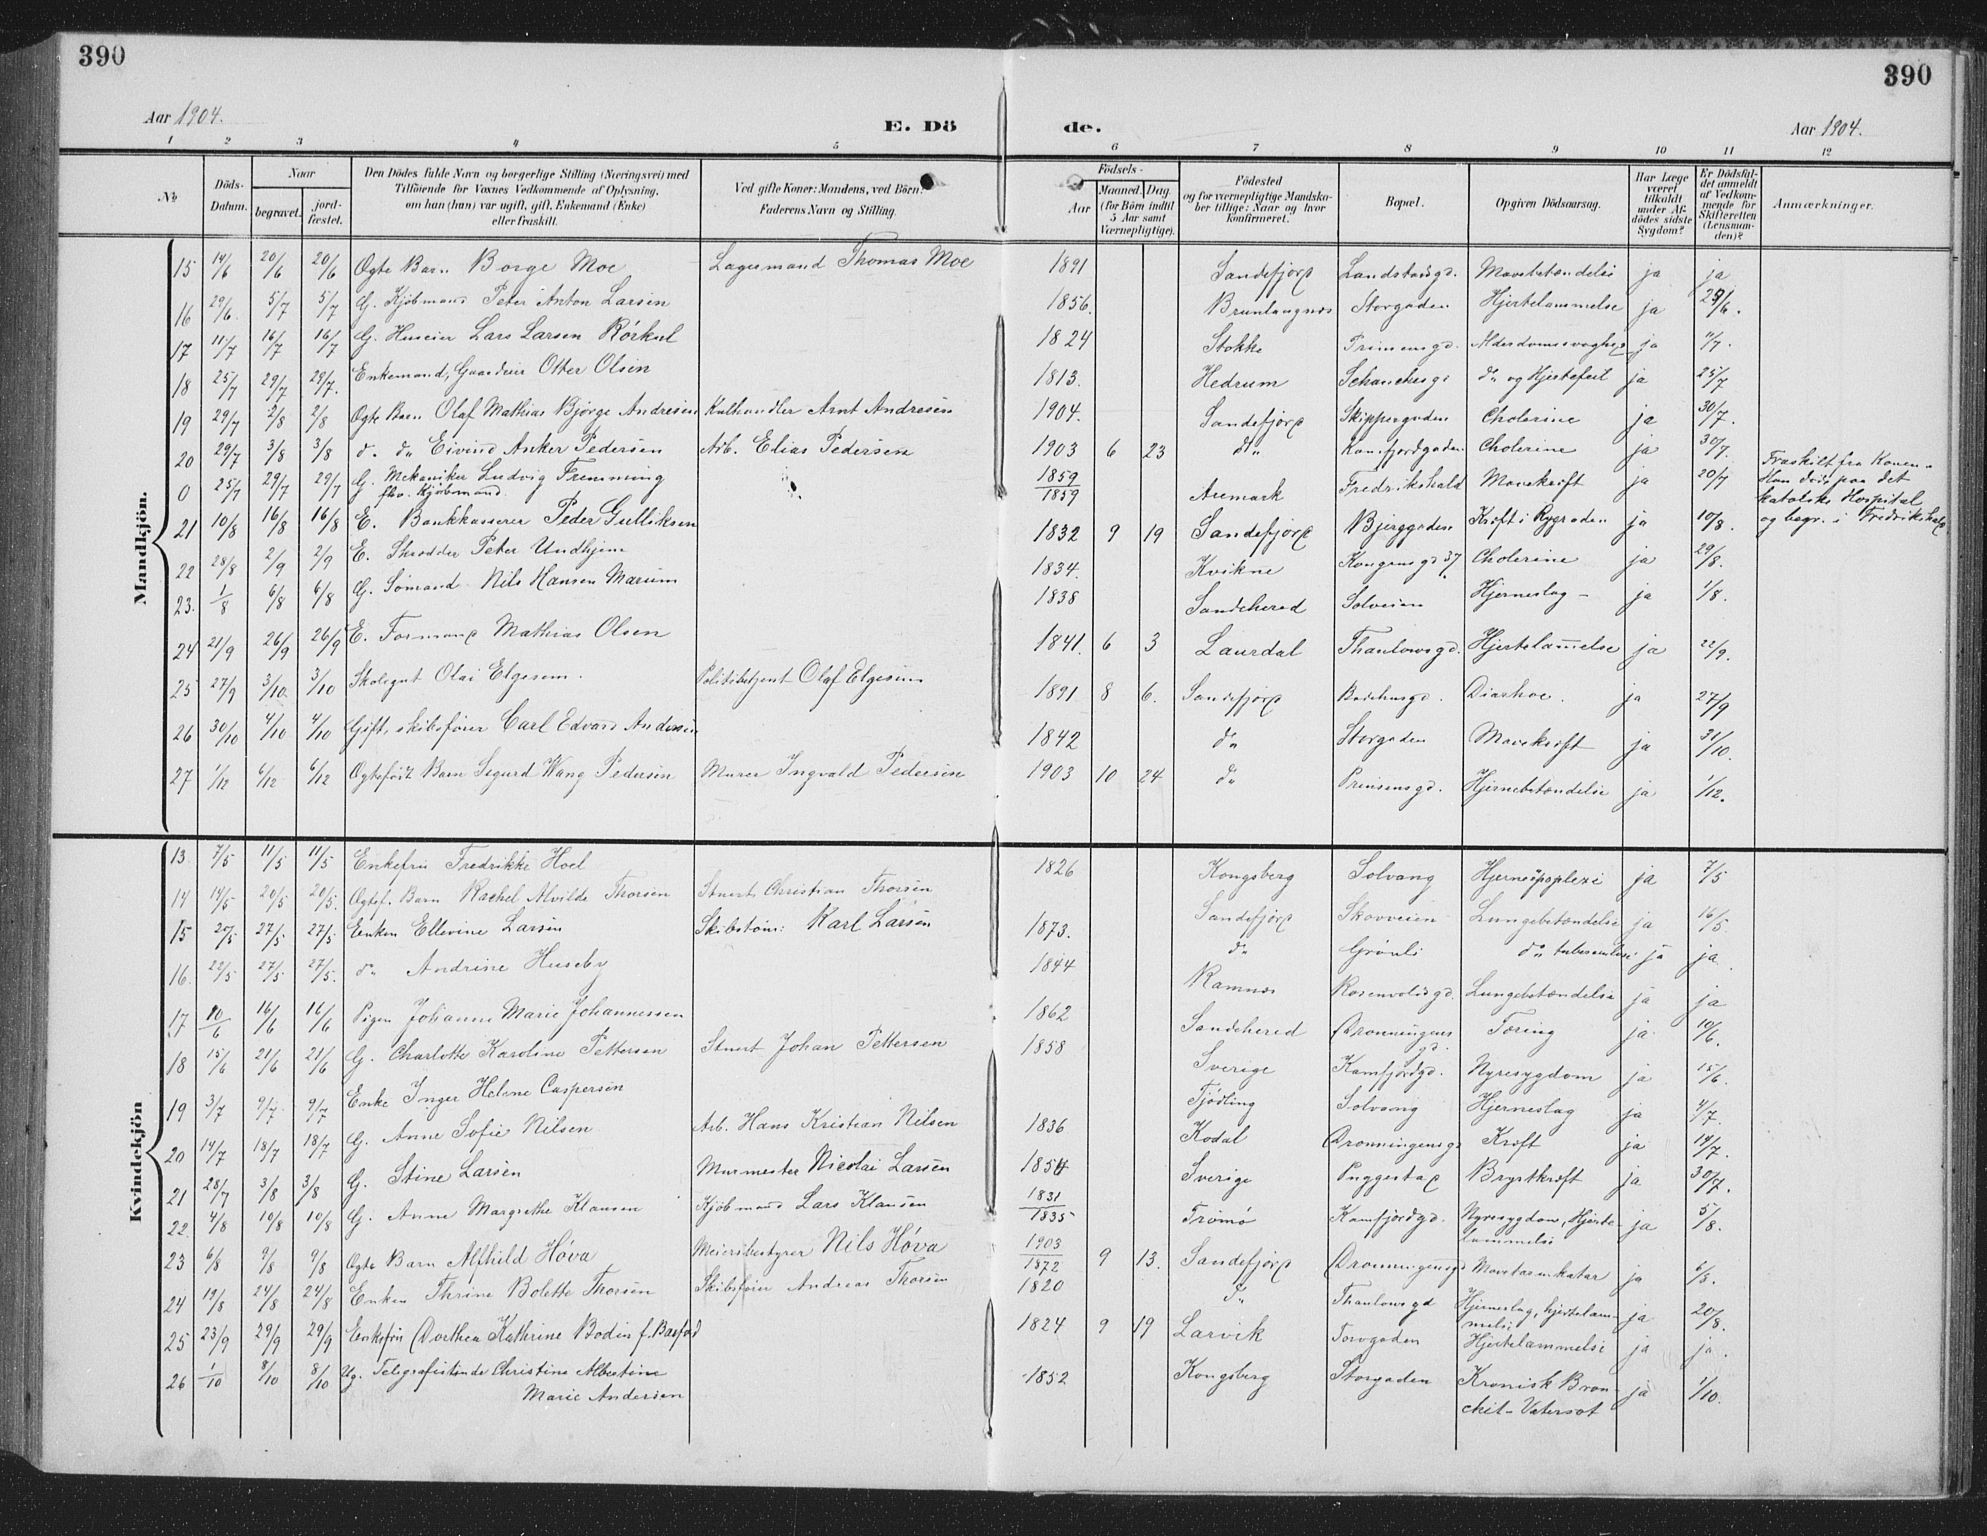 390
390
Aar 1904.
E. Dö
de.
Aar 1904.
1 2 3 4 5 6 7 8 9 10 11 12
No
Döds-Datum.
Naar
begravet.
jord-fæstet.
Den Dödes fulde Navn og borgerlige Stilling (Næringsvei) med
Tilföiende for Voxnes Vedkommende af Oplysning,
om han (hun) var ugift, gift, Enkemand (Enke)
eller fraskilt.
Ved gifte Koner: Mandens, ved Börn:
Faderens Navn og Stilling.
Födsels-
Aar
Maaned. Dag.
(for Börn indtil
5 Aar samt
Værnepligtige).
Födested
og for værnepligtige Mandskaber tillige: Naar og hvor konfirmeret.
Bopæl.
Opgiven Dödsaarsag.
Har Læge været tilkaldt under Afdödes sidste Sygdom?
Er Dödsfaldet anmeldt af Vedkommende for Skifteretten (Lensmanden)?
Anmærkninger.
Mandkjön.
15 14/6 20/6 20/6 Ogte Barn Borge Moe Lagesmand Thomas Moe 1891 Sandefjord Landstadsgd. Mavebetændelse ja ja
16 29/6 5/7 5/7 G. Kjöbmand Peter Anton Larsen 1856. Brunlangnes Storgaden Hjertelammelse ja 29/6.
17 11/7 16/7 16/7 G. Huseier Lars Larsen Rörkul 1824 Stokke Prinsensgd. Alderdomssvaghed ja 11/7.
18 25/7 29/7 29/7. Enkemand, Gaardeier Otter Olsen 1813. Hedrum Schanchesgd do og Hjertefeil ja 25/7
19 29/7 2/8 2/8 Ogte Barn Olaf Mathias Bjørge Andresen Kulhandler Arnt Andresen 1904. Sandefjord Skippergaden Cholerine ja 30/7.
20 29/7 3/8 3/8 do do Eivind Anker Pedersen Arb. Elias Pedersen 1903 6 23 do Kamfjordgaden Cholerine ja 30/7.
0 25/7 29/7 29/7 G. Mekaniker Ludvig Fremming 1859 Aremark Fredrikshald Mavekræft ja 20/7 Fraskilt fra Konen.
fhv. Kjöbmand. 1859 Han døde paa det
katolske Hospital
og begr. i Fredrikshald
21 10/8 16/8 16/8 E. Bankkasserer Peder Gulliksen 1832 9 19 Sandefjord Bjerggaden Kræft i Rygraden ja 10/8.
22 28/8 2/9 2/9 E. Skrædder Peter Undhjem 1834. Kvikne Kongensgd 37. Cholerine ja 29/8.
23. 1/8 6/8 6/8 G. Sömand Nils Hansen Marum 1838 Sandeherad Solveien Hjerneslag – ja 1/8.
24 21/9 26/9 26/9 E. Formand Mathias Olsen 1841. 6 3 Laurdal Thaulowsgd. Hjertelammelse ja 22/9.
25 27/9 3/10. 3/10 Skolegut Olai Elgesem. Politibetjent Olaf Elgesem 1891 8 6. Sandefjord Badehusgd. Diarhoe. ja 27/9
26 30/10 4/10 4/10 Gift, skibsfører Carl Edvard Andersen 1842 do Storgaden Mavekræft ja 31/10.
27 1/12 6/12 6/12 Ogtefödt Barn Sigurd Wang Pedersen Murer Ingvald Pedersen 1903 10 24 do Prinsensgd. Hjernebetændelse ja 1/12.
Kvindekjön
13 7/5 11/5 11/5 Enkefru Fredrikke Hoel 1826 Kongsberg Solvang Hjerneapoplexi ja 7/5
14 14/5 20/5 20/5. Ogtef. Barn Rachel Alvilde Thorsen Stuert Christian Thorsen Sandefjord Skovveien Lungebetændelse ja 16/5.
15 20/5 27/5 27/5 Enken Ellevine Larsen Skibstøm: Karl Larsen 1873. do Grønli do tuberculose ja ja
16. 22/5 27/5 27/5. do Andrine Huseby 1844 Ramnes Rosenvoldsgd. Lungebetændelse ja ja
17 10/6 16/6 16/6 Pigen Johanne Marie Johannessen 1862 Sandeherad Dronningens gd. Tæring ja 10/6.
18 15/6 21/6 21/6 G. Charlotte Karoline Pettersen Stuert Johan Pettersen 1858 Sverige Kamfjordgd. Nyresygdom ja 15/6.
19 3/7 9/7 9/7 Enke Inger Helene Caspersen Tjödling Solvang Hjerneslag ja 4/7.
20 14/7 18/7 18/7 G. Anne Sofie Nilsen Arb. Hans Kristian Nilsen 1836 Kodal Dronningensgd Kræft ja 14/7.
21 28/7 3/8 3/8 G. Stine Larsen Murmester Nicolai Larsen 1854 Sverige Puggestad Brystkræft ja 30/7.
22. 4/8 10/8 10/8 G. Anne Margrethe Klausen Kjöbmand Lars Klausen 1831 1835 Tromø Kamfjordgd. Nyresygdom, Hjerte- ja 5/8.
lammelse
23 6/8 9/8 9/8 Ogte Barn Alfhild Höva Meieribestyrer Nils Höva 1903 1872 9 13. Sandefjord Dronningensgd Mavetarmkatar ja 6/8.
24 19/8 24/8 24/8 Enken Thrine Bolette Thorsen Skibsfører Andreas Thorsen 1820 do Thaulowsgd Hjerneslag, hjertelam- ja 20/8.
melse
25 23/9 29/9 29/9 Enkefru Dorthea Kathrine Bodin f. Basfod 1824 9 19 Larvik Torvgaden Hjertelammelse ja ja.
26 1/10 8/10 8/10 Ug. Telegrafistinde Christine Albertine 1852 Kongsberg Storgaden Kronisk Bron- ja 1/10.
Marie Andersen chit – Vatersot